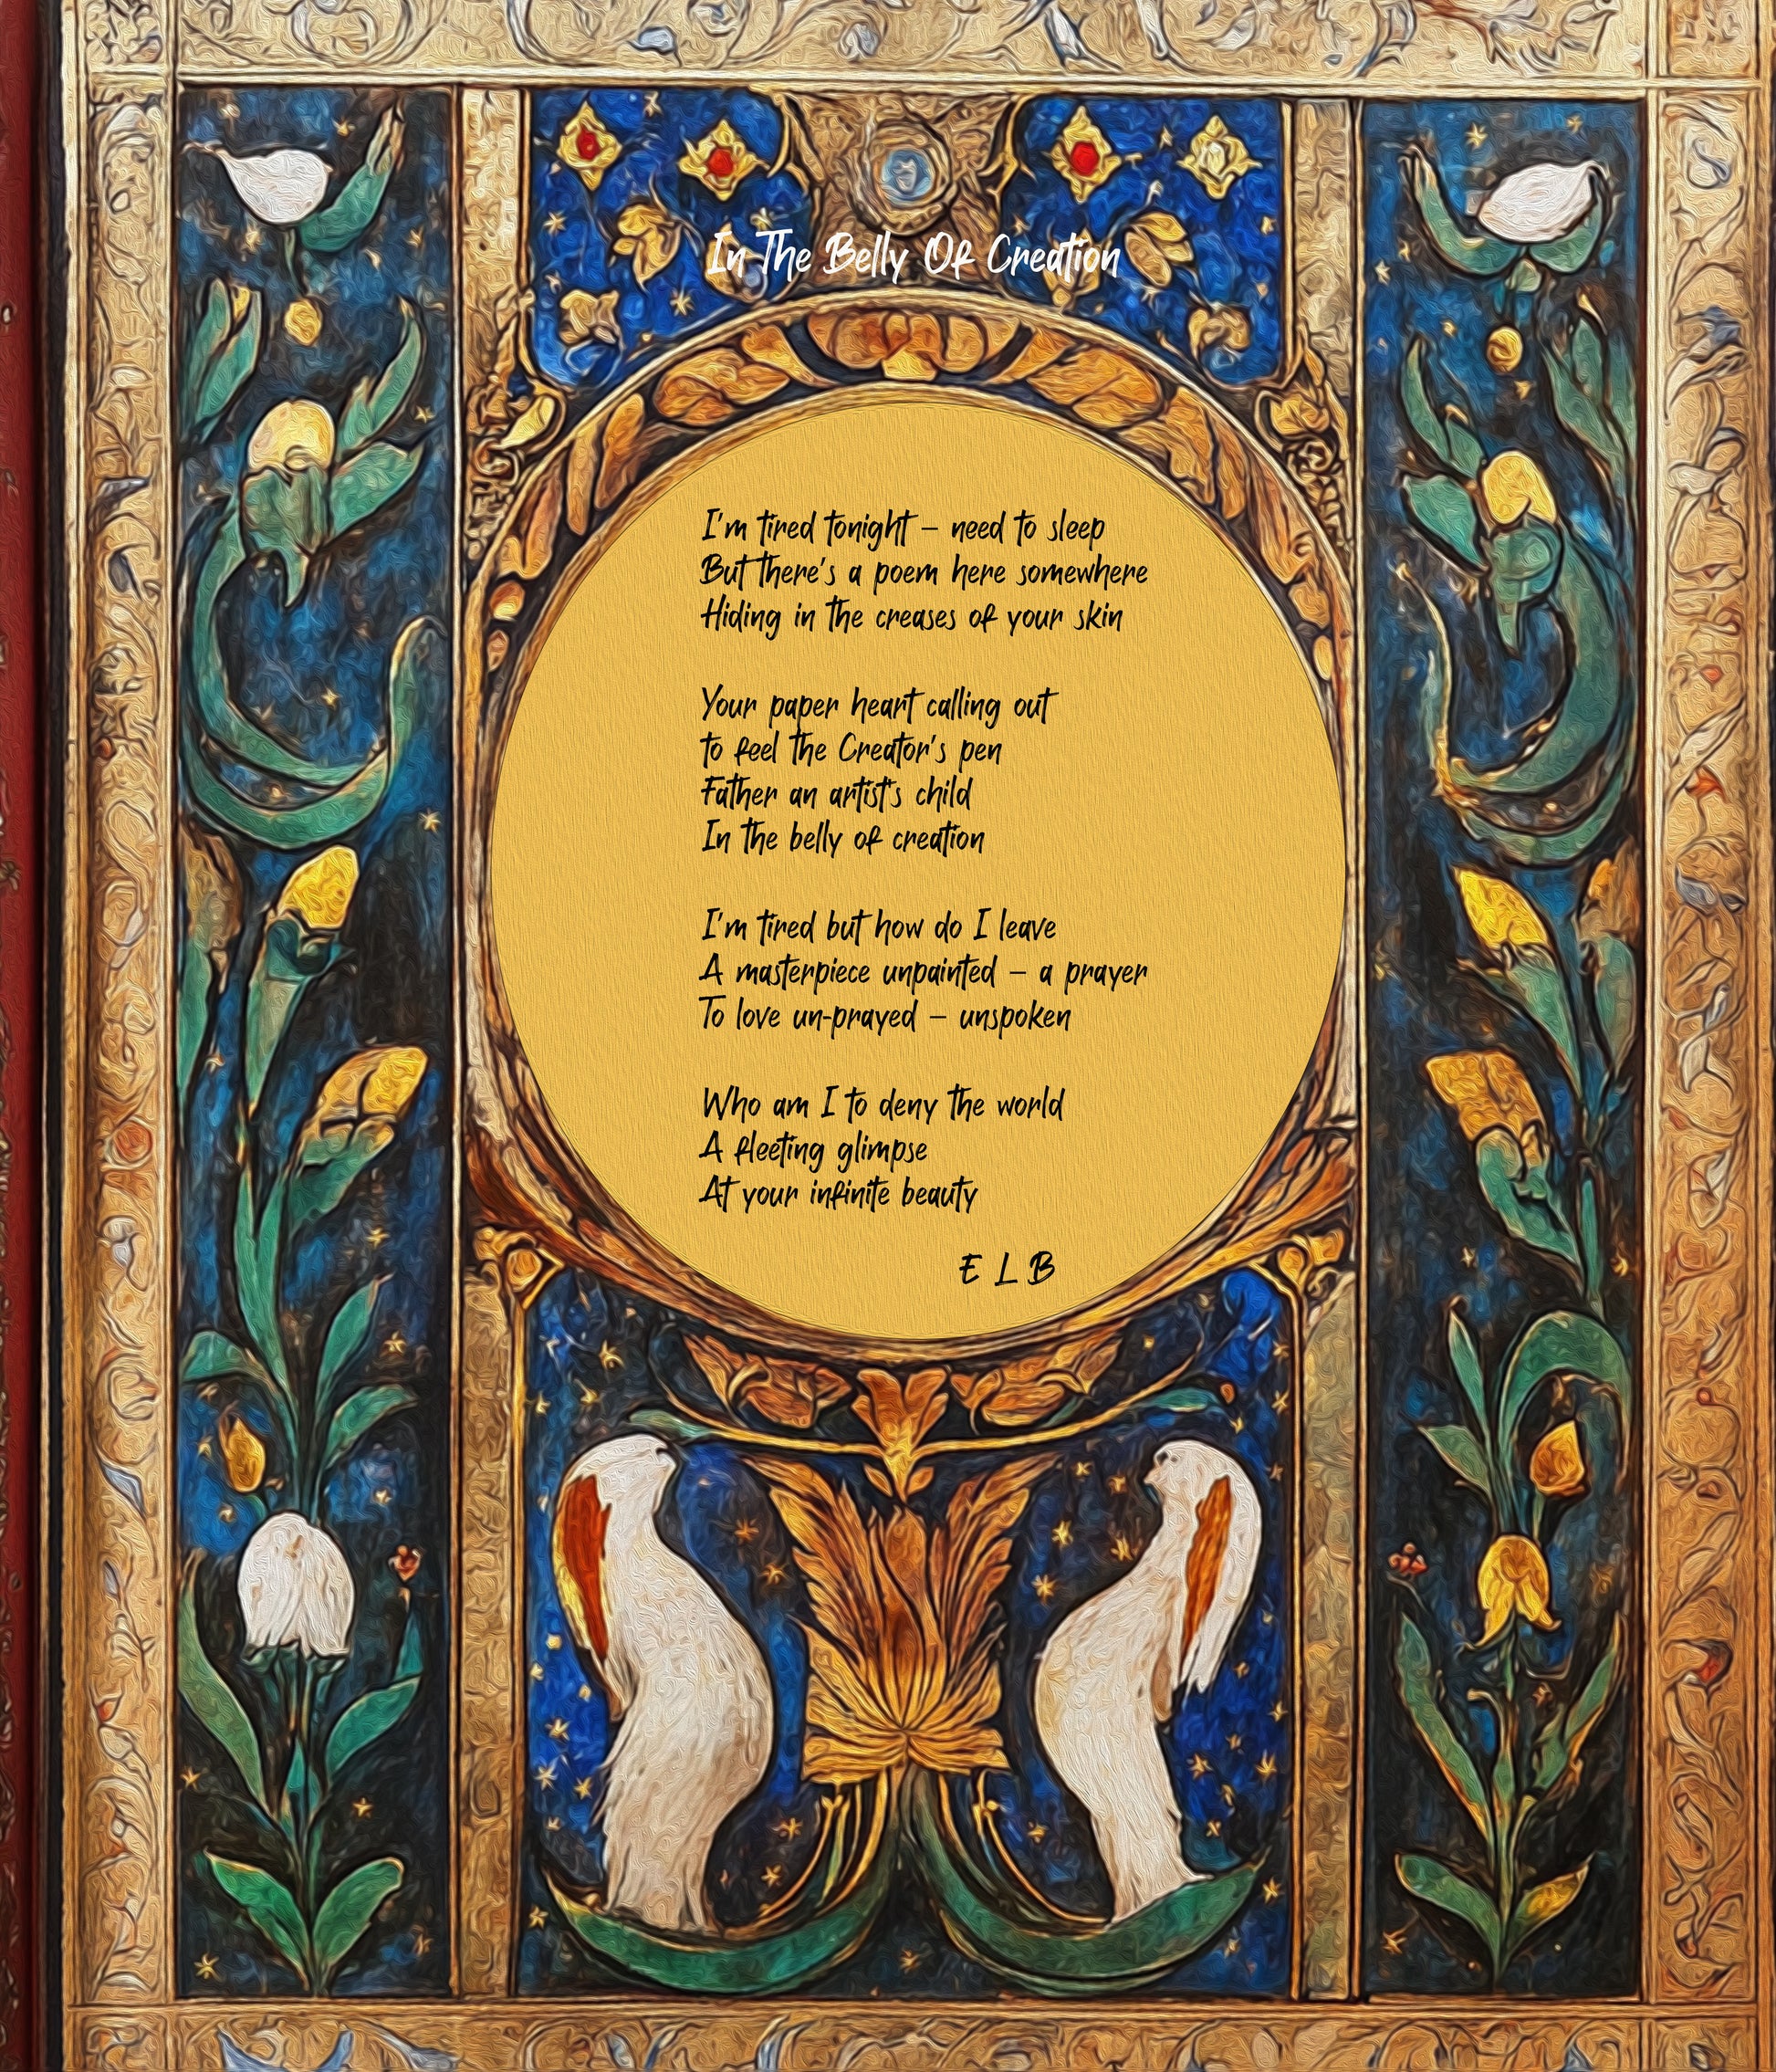 In The Belly Of Creation
I'm tired tonight – need to sleep
But there's a poem here somewhere
Hiding in the creases of your skin
Your paper heart calling out
to feel the Creator's pen
Father an artist's child
In the belly of creation
I'm tired but how do I leave
A masterpiece unpainted – a prayer
To love un-prayed – unspoken
Who am I to deny the world
A fleeting glimpse
At your infinite beauty
E L B